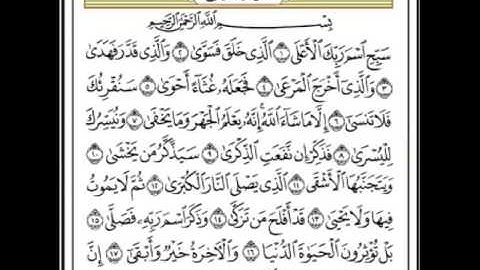 بِسْمِ ٱللَّهِ ٱلرَّحْمَٰنِ ٱلرَّحِيمِ
سَبِّحِ ٱسْمَ رَبِّكَ ٱلْأَعْلَى ١ ٱلَّذِى خَلَقَ فَسَوَّىٰ ٢ وَٱلَّذِى قَدَّرَ فَهَدَىٰ
٣ وَٱلَّذِىٓ أَخْرَجَ ٱلْمَرْعَىٰ ٤ فَجَعَلَهُۥ غُثَآءً أَحْوَىٰ ٥ سَنُقْرِئُكَ
فَلَا تَنسَىٰٓ ٦ إِلَّا مَا شَآءَ ٱللَّهُ إِنَّهُۥ يَعْلَمُ ٱلْجَهْرَ وَمَا يَخْفَىٰ ٧ وَنُيَسِّرُكَ
لِلْيُسْرَىٰ ٨ فَذَكِّرْ إِن نَّفَعَتِ ٱلذِّكْرَىٰ ٩ سَيَذَّكَّرُ مَن يَخْشَىٰ ١٠
وَيَتَجَنَّبُهَا ٱلْأَشْقَى ١١ ٱلَّذِى يَصْلَى ٱلنَّارَ ٱلْكُبْرَىٰ ١٢ ثُمَّ لَا يَمُوتُ
فِيهَا وَلَا يَحْيَىٰ ١٣ قَدْ أَفْلَحَ مَن تَزَكَّىٰ ١٤ وَذَكَرَ ٱسْمَ رَبِّهِۦ فَصَلَّىٰ ١٥
بَلْ تُؤْثِرُونَ ٱلْحَيَوٰةَ ٱلدُّنْيَا ١٦ وَٱلْـَٔاخِرَةُ خَيْرٌ وَأَبْقَىٰٓ ١٧ إِنَّ